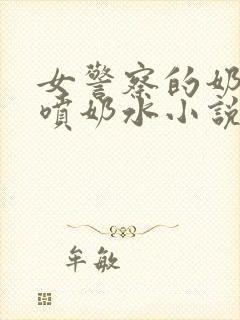 女警察的奶
喷奶水小說
牟敏